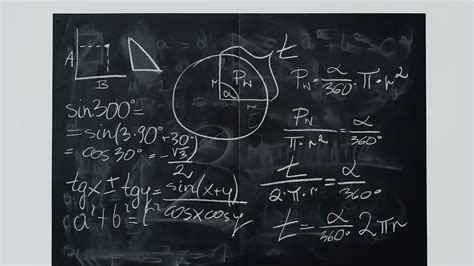 A
B
sin300°=
=sin(3·90°+30°)=
=cos30°=-√3/2
tgx±tgy=sin(x+y)/cosxcosy
a²+b²=c²
t
Pw
α
r
r
Pw=α/360·π·r²
Pw/π·r²=α/360°
t/2·π·r=α/360°
t=α/360° 2πr